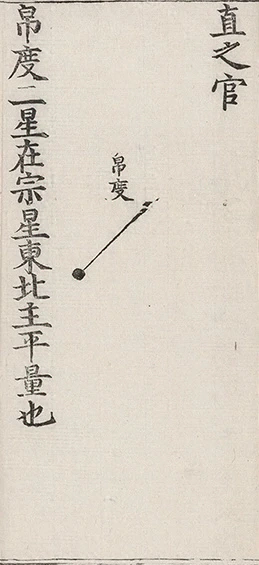 直之官
帛度
帛度二星在宗星東北主平量也